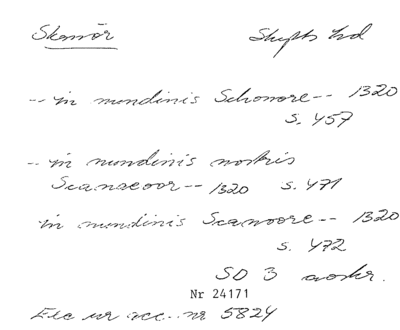 Skanör Skytts hd
-- in nundinis Schonore -- 1320
s. 457
-- in nundinis nostris
Scanæoor -- 1320 s. 471
in nundinis Scanoore -- 1320
s. 472
SD 3 avskr.
Nr 24171
Exc ur acc. nr 5824